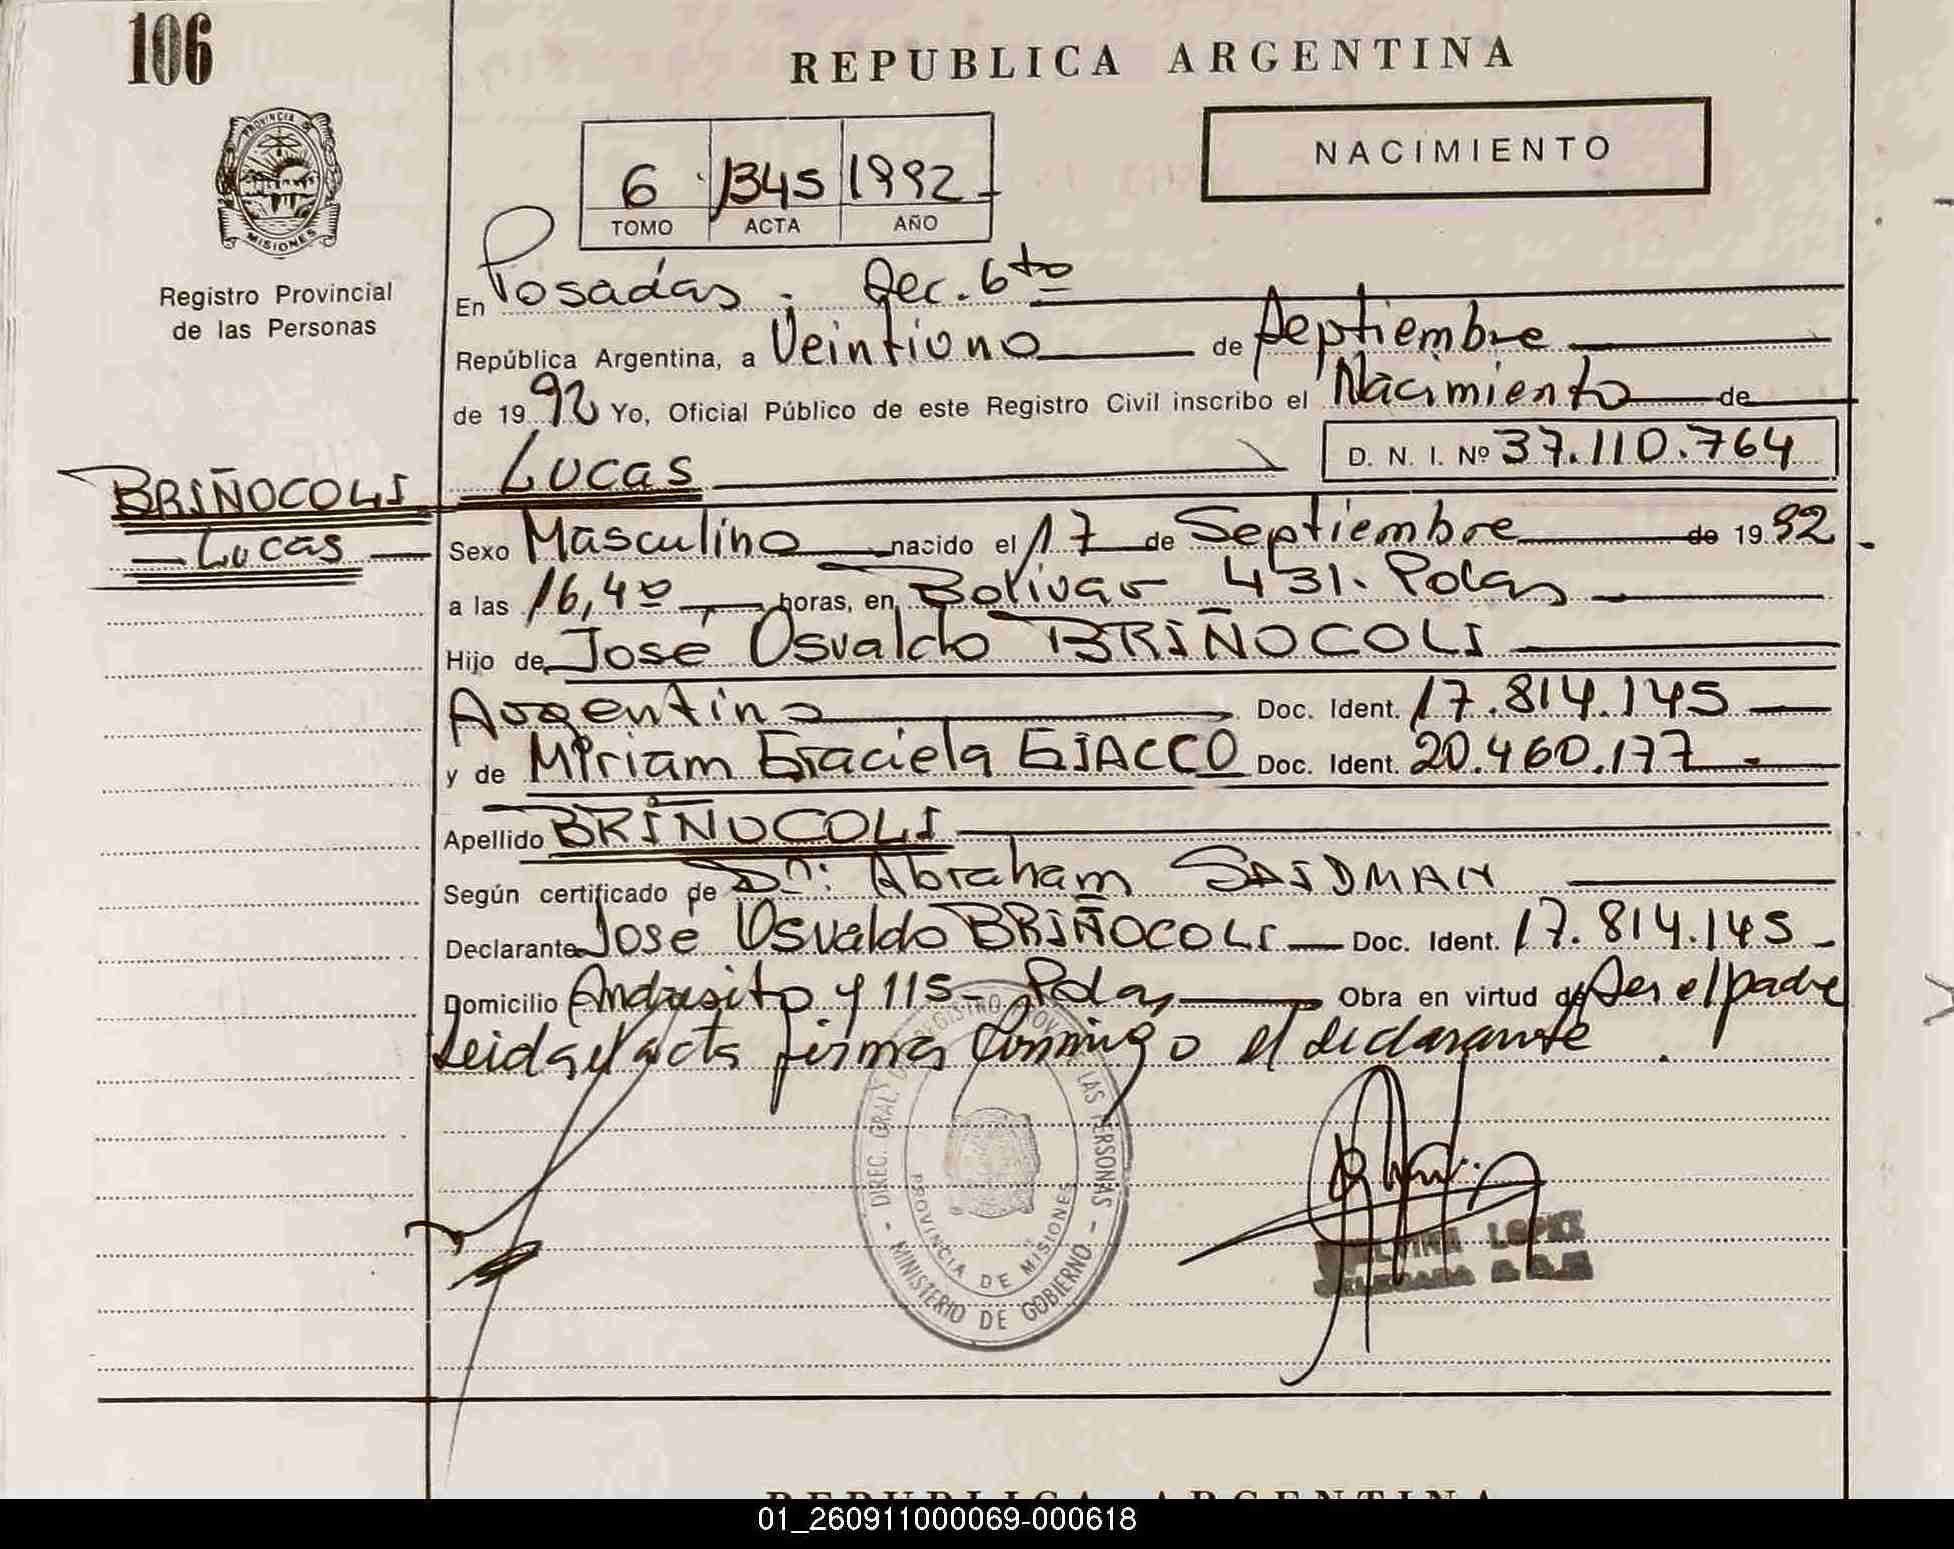 106
REPUBLICA ARGENTINA
NACIMIENTO
6 1345 1992
TOMO ACTA AÑO
PROVINCIA DE
MISIONES
Registro Provincial
de las Personas
En Posadas. Sec. 6to
República Argentina, a Veintiuno de Septiembre
de 19 92 Yo, Oficial Público de este Registro Civil inscribo el Nacimiento de
LUCAS D. N. I. Nº 37.110.764
BRIÑOCOLI
Lucas
Sexo Masculino nacido el 17 de Septiembre de 19 92
a las 16,40 horas, en Bolívar 431. Pdas
Hijo de José Osvaldo BRIÑOCOLI
Argentino Doc. Ident. 17.814.145
y de Miriam Graciela GIACCO Doc. Ident. 20.460.177
Apellido BRIÑOCOLI
Según certificado de Dn: Abraham SAIDMAN
Declarante José Osvaldo BRIÑOCOLI Doc. Ident. 17.814.145
Domicilio Andresito y 115 - Pdas Obra en virtud de Ser el padre
Leida el acta firma conmigo el declarante.
DIREC. GRAL. DE REGISTRO PROV. DE LAS PERSONAS
PROVINCIA DE MISIONES
MINISTERIO DE GOBIERNO
LOPEZ
DELEGADA
REPUBLICA ARGENTINA
01_260911000069-000618